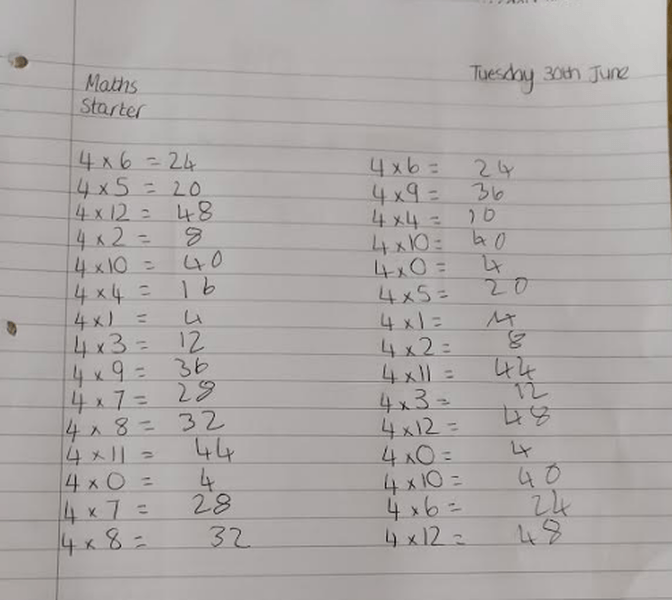 Tuesday 30th June
Maths
Starter
4 × 6 = 24
4 × 5 = 20
4 × 12 = 48
4 × 2 = 8
4 × 10 = 40
4 × 4 = 16
4 × 1 = 4
4 × 3 = 12
4 × 9 = 36
4 × 7 = 28
4 × 8 = 32
4 × 11 = 44
4 × 0 = 4
4 × 7 = 28
4 × 8 = 32
4 × 6 = 24
4 × 9 = 36
4 × 4 = 10
4 × 10 = 40
4 × 0 = 4
4 × 5 = 20
4 × 1 = 4
4 × 2 = 8
4 × 11 = 44
4 × 3 = 12
4 × 12 = 48
4 × 0 = 4
4 × 10 = 40
4 × 6 = 24
4 × 12 = 48